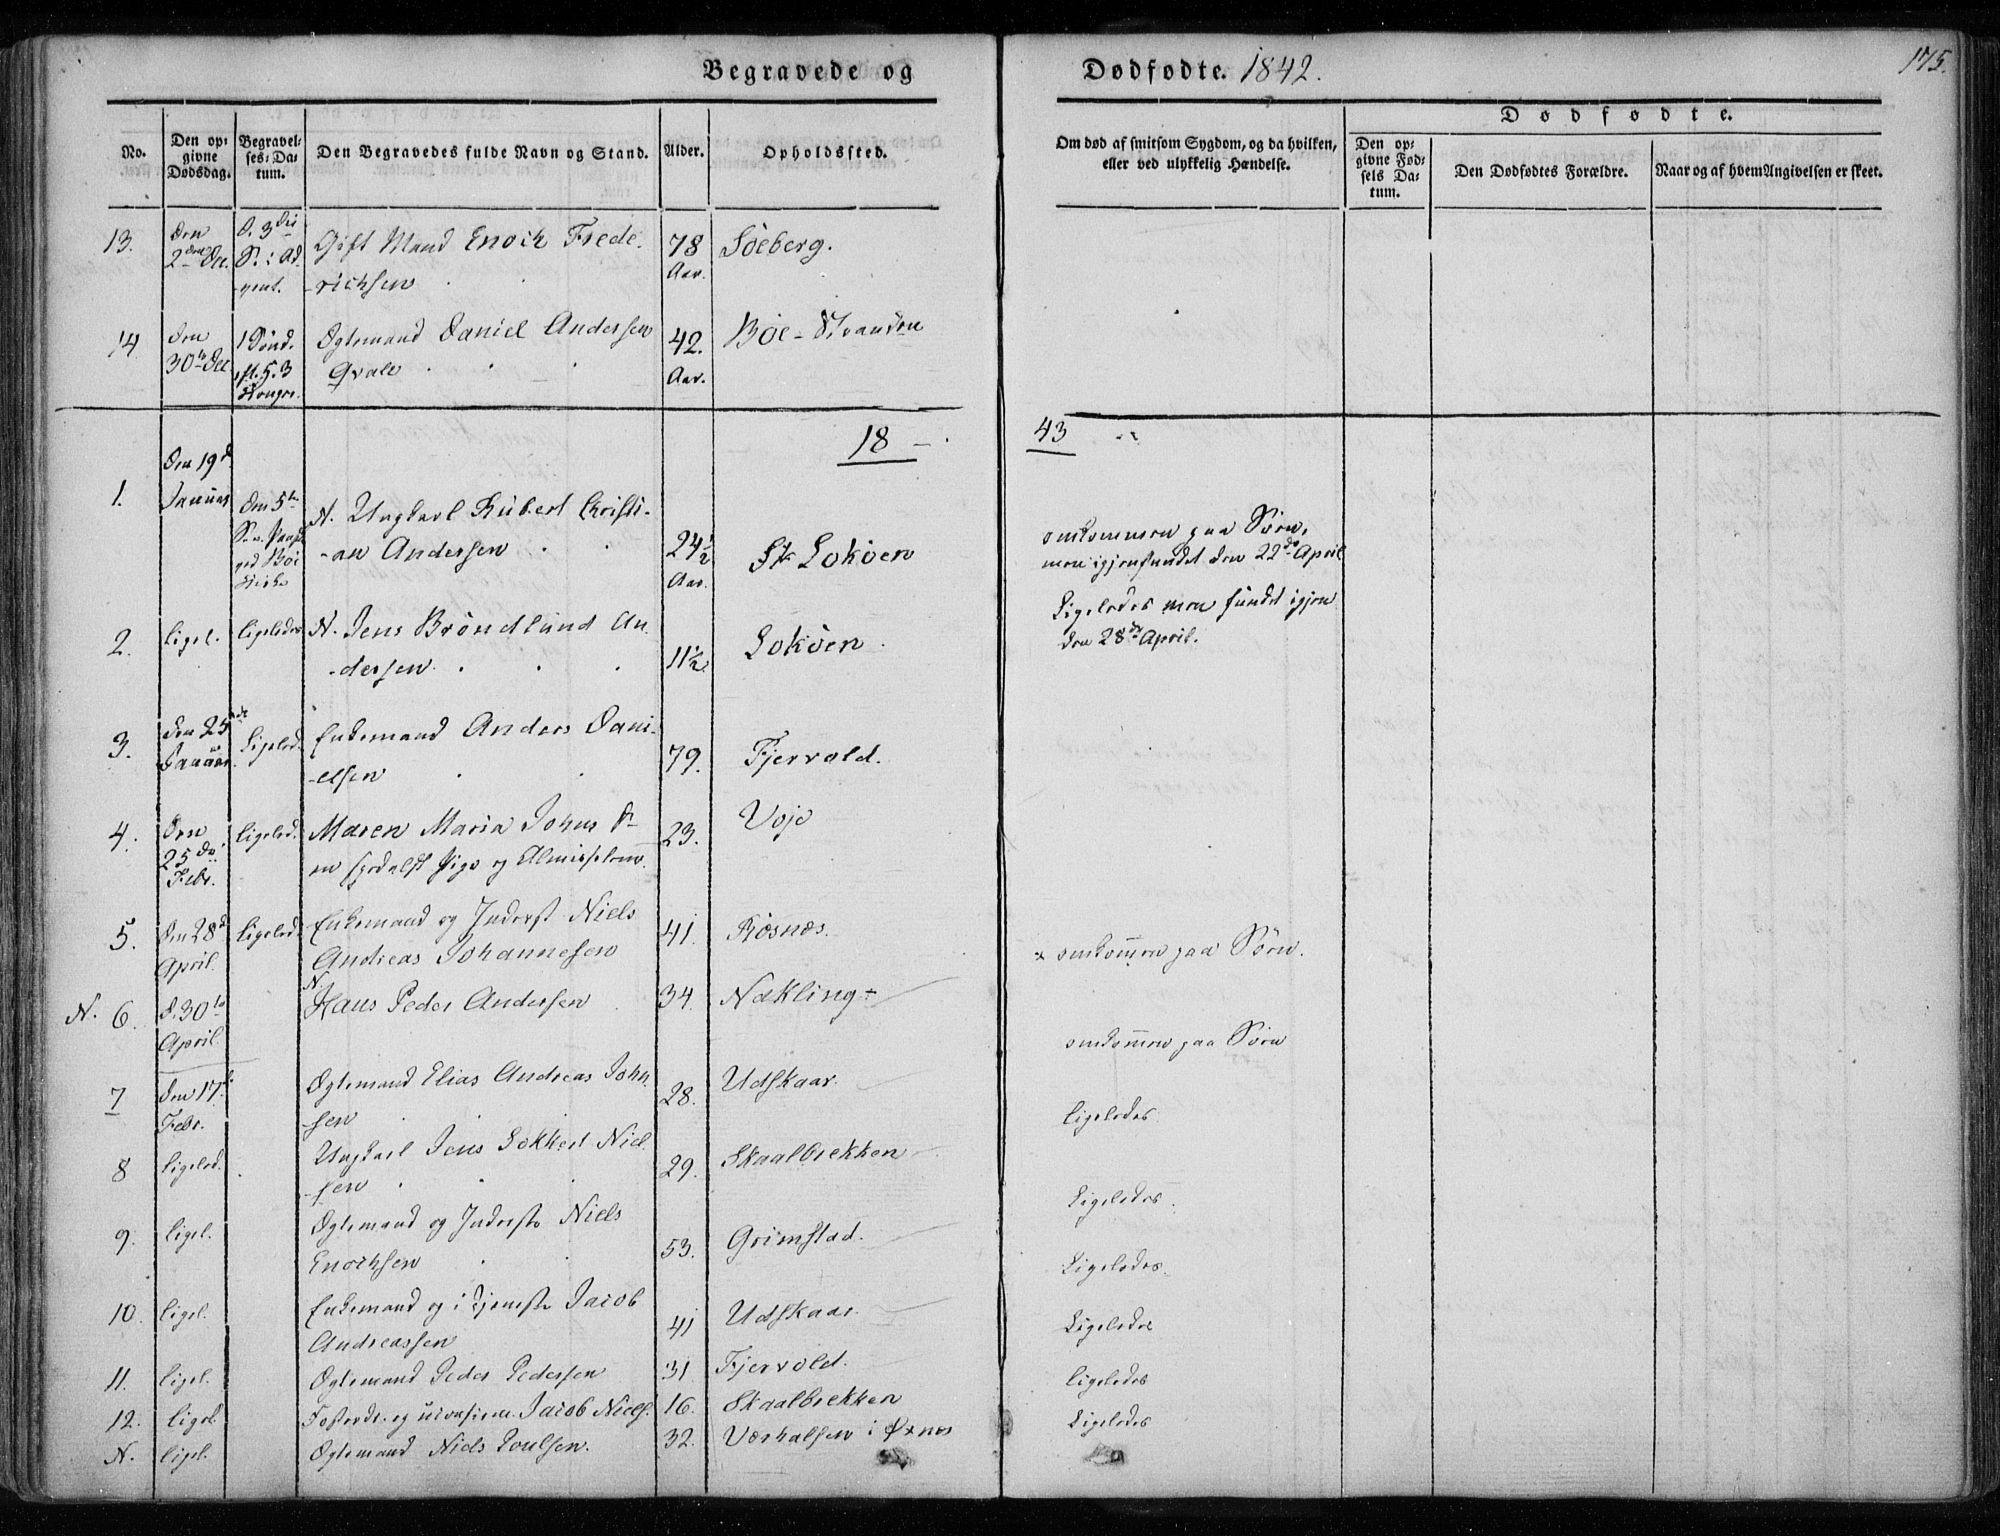 Begravede og Dødfødte. 1842. 175.
No.
Den op-
givne
Dødsdag.
Begravel-
ses-Da-
tum.
Den Begravedes fulde Navn og Stand.
Alder.
Opholdssted.
Om død af smitsom Sygdom, og da hvilken,
eller ved ulykkelig Hændelse.
Dødfødte.
Den op-
givne Fød-
sels Da-
tum.
Den Dødfødtes Forældre.
Naar og af hvem Angivelsen er skeet.
13.
Den
2den Dec.
D. 3die
S. i Ad-
vent.
Gift Mand Enoch Frede-
-richsen
78
Aar.
Söeberg.
14
Den
30te Dec
1 Sönd.
Ægtemand Daniel Andersen
Qvale
42.
Aar.
Böe-Stranden
18 - 43
1.
Den 19d
Januar
Den 5te
Böe
Kirke
N. Ungkarl Hubert Christi-
-an Andersen
24½
Aar.
St. Loköen
omkommen paa Söen,
men igjenfundet den 22de April
2.
Ligel.
Ligeledes
N. Jens Bröndlund An-
-dersen
11½
Loköen
Ligeledes men fundet igjen
den 28de April.
3.
Den 25de
Januar.
Ligeled.
Enkemand Anders Dani-
-elsen
79.
Fjervold.
4.
Den
25de
Febr.
Ligeled.
Maren Maria Johns D-
en spedalsk Pige og Almisselem
23.
Voje
5.
Den 28d
April.
Ligeled.
Enkemand og Inderst Niels
Andreas Johannesen
41.
Rösnæs.
omkommen paa Söen.
N. 6.
D. 30te
April.
N.
Hans Peder Andersen
34.
Nækling
omkommen paa Söen
7
Den 17de
Febr.
Ægtemand Elias Andreas John-
sen
28.
Udskaar.
Ligeledes
8
Ligeled.
Ungkarl Jens Lokkert Niel-
-sen
29.
Skaalbrekken
Ligeledes
9.
Ligel.
Ægtemand og Inderste Niels
Enochsen
53.
Grimstad.
Ligeledes
10.
Ligel.
Enkemand og i Tjeneste Jacob
Andreassen
41
Udskaar.
Ligeledes
11.
Ligel.
Ægtemand Peder Pedersen
31
Fjervold.
Ligeledes
12.
Ligel.
Jacob Niels.
16.
Skaalbrekken
Ligeledes
N.
Ligel.
Ægtemand Niels Poulsen.
32.
Værhalsen i Øxnes